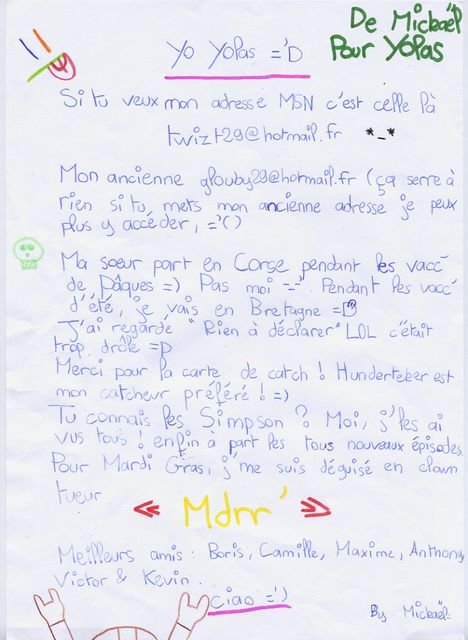 De Mickaël
Pour Yopas
Yo Yopas ='D
Si tu veux mon adresse MSN c'est celle là
twiz29@hotmail.fr *_*
Mon ancienne glouby29@hotmail.fr (ça serre à
rien si tu, mets mon ancienne adresse je peux
plus y accéder, ='()
Ma sœur part en Corse pendant les vacc'
de Pâques =) Pas moi -_-' Pendant les vacc'
d'été, je vais en Bretagne =D
J'ai regardé "Rien à déclarer" LOL c'était
trop drôle =D
Merci pour la carte de catch ! Hunderteker est
mon catcheur préféré ! =)
Tu connais les Simpson ? Moi, j'les ai
vus tous ! enfin à part les tous nouveaux épisodes.
Pour Mardi Gras, j'me suis déguisé en clown
tueur
« Mdrr' »
Meilleurs amis : Boris, Camille, Maxime, Anthony,
Victor & Kevin.
ciao =')
By Mickaël